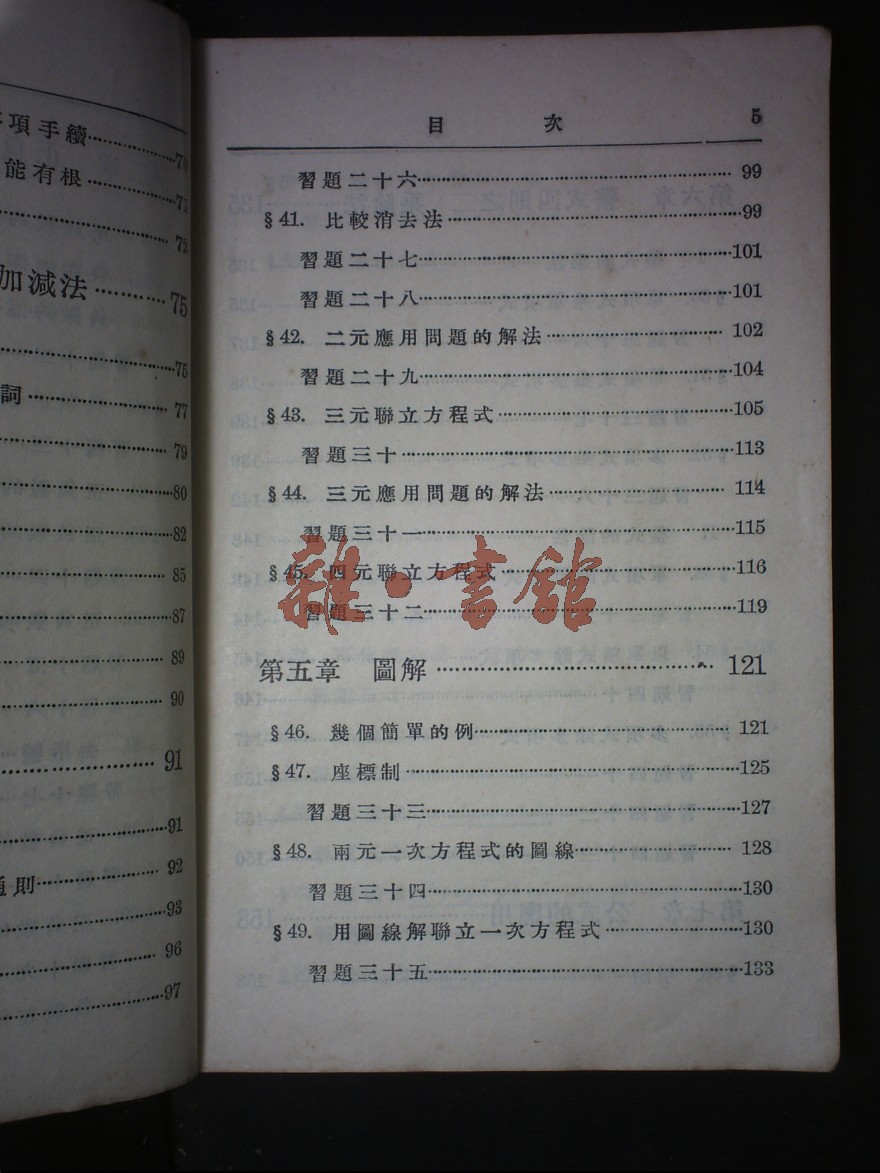 項手續……70
能有根……71
……72
加減法……75
……75
詞……77
……79
……80
……82
……85
……87
……89
……90
……91
……91
……92
則……93
……96
……97
目 次 5
習題二十六……99
§41. 比較消去法……99
習題二十七……101
習題二十八……101
§42. 二元應用問題的解法……102
習題二十九……104
§43. 三元聯立方程式……105
習題三十……113
§44. 三元應用問題的解法……114
習題三十一……115
§45. 四元聯立方程式……116
習題三十二……119
雜·書館
第五章 圖解……121
§46. 幾個簡單的例……121
§47. 座標制……125
習題三十三……127
§48. 兩元一次方程式的圖線……128
習題三十四……130
§49. 用圖線解聯立一次方程式……130
習題三十五……133